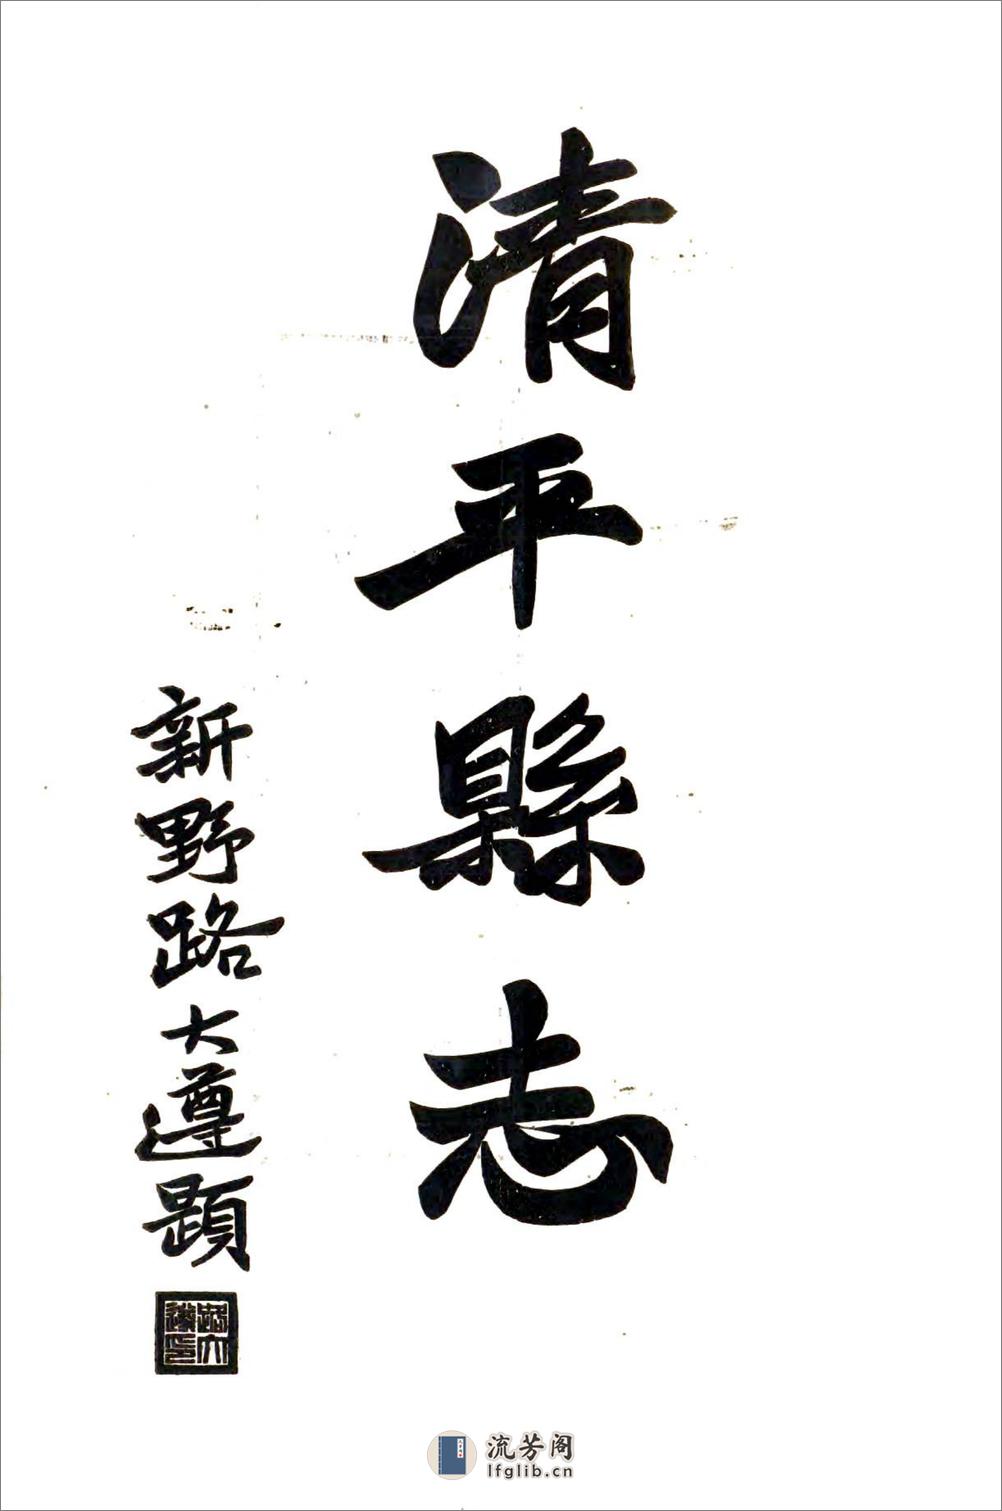 清平縣志
新野路大遵題
路大遵印
流芳阁
lfglib.cn